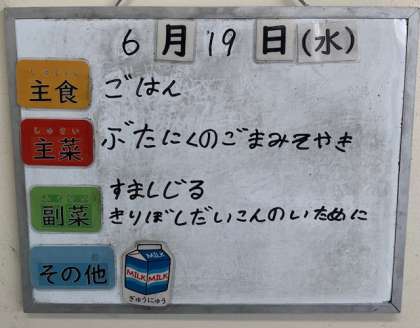 6月19日(水)
主食 ごはん
しゅさい
主菜 ぶたにくのごまみそやき
すましじる
副菜 きりぼしだいこんのいために
その他
MILK
MILK MILK
ぎゅうにゅう